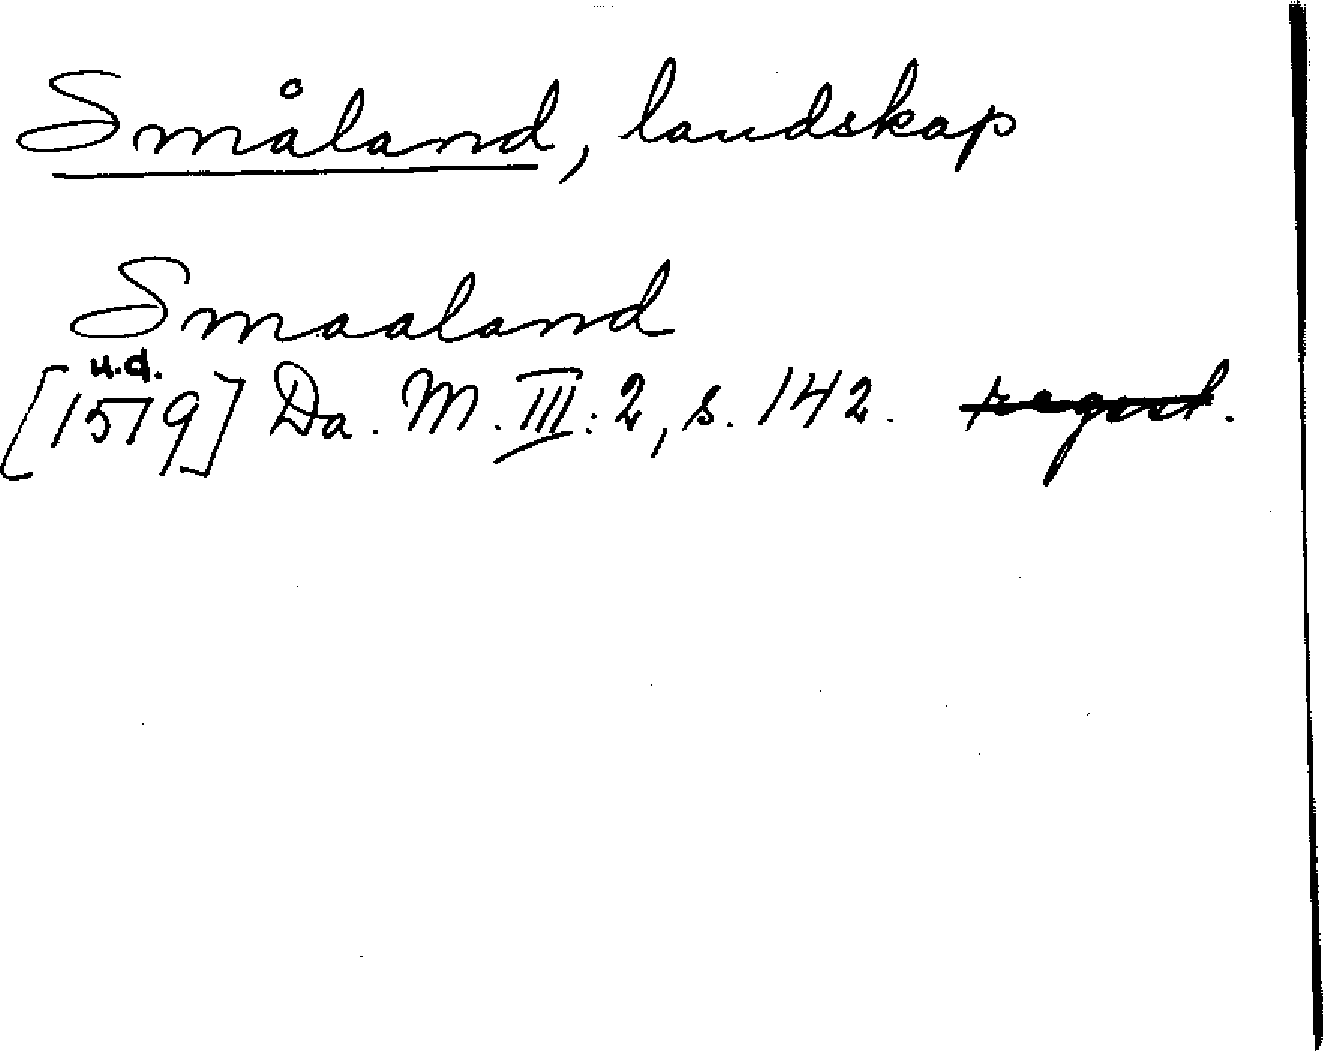 Småland, landskap
Smaaland
u.d.
[1519] Da. M. III: 2, s. 142.